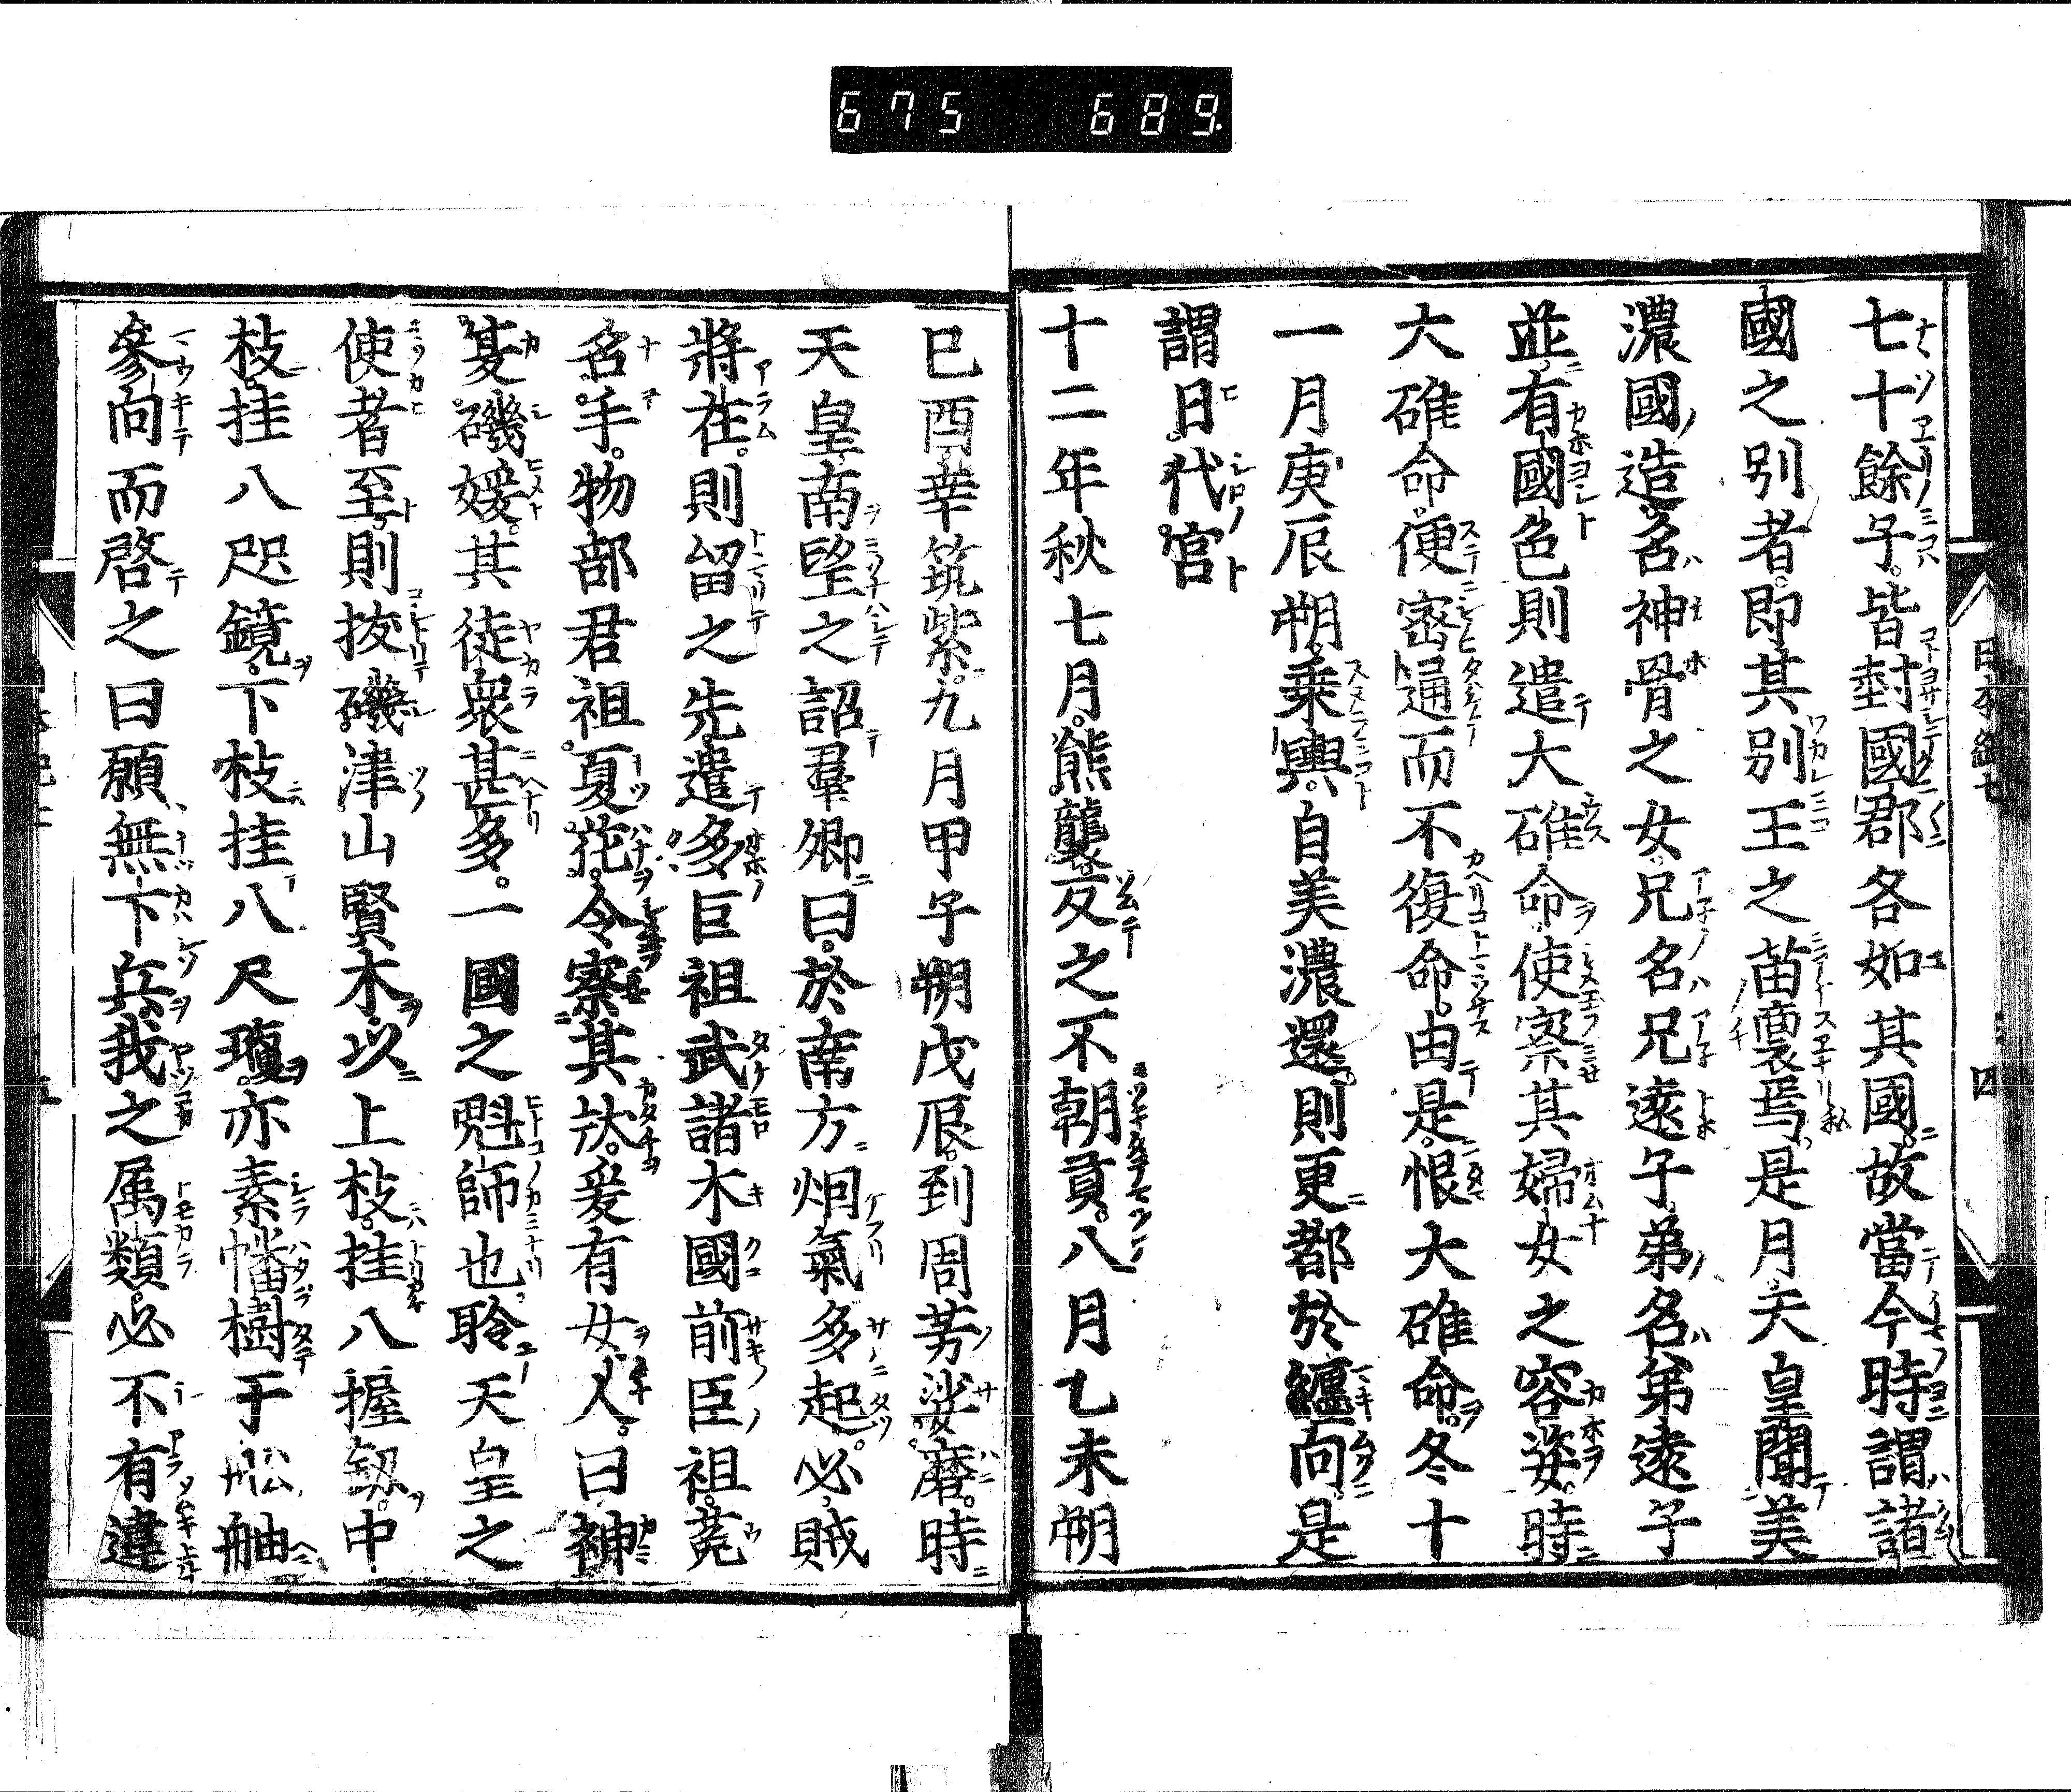 675 689.
日本紀七 四
七十餘子皆封國郡各如其國故當今時謂諸
國之別者即其別王之苗裔焉是月天皇聞美
濃國造名神骨之女兄名兄遠子弟名弟遠子
並有國色則遣大碓命使察其婦女之容姿時
大碓命便密通而不復命由是恨大碓命冬十
一月庚辰朔乘輿自美濃還則更都於纏向是
謂日代宮
十二年秋七月熊襲反之不朝貢八月乙未朔
己酉幸筑紫九月甲子朔戊辰到周芳娑麼時
天皇南望之詔羣卿曰於南方烟氣多起必賊
將在則留之先遣多臣祖武諸木國前臣祖菟
名手物部君祖夏花令察其狀爰有女人曰神
夏磯媛其徒衆甚多一國之魁師也聆天皇之
使者至則拔磯津山賢木以上枝挂八握釼中
枝挂八咫鏡下枝挂八尺瓊亦素幡樹于舩舳
參向而啓之曰願無下兵我之属類必不有違